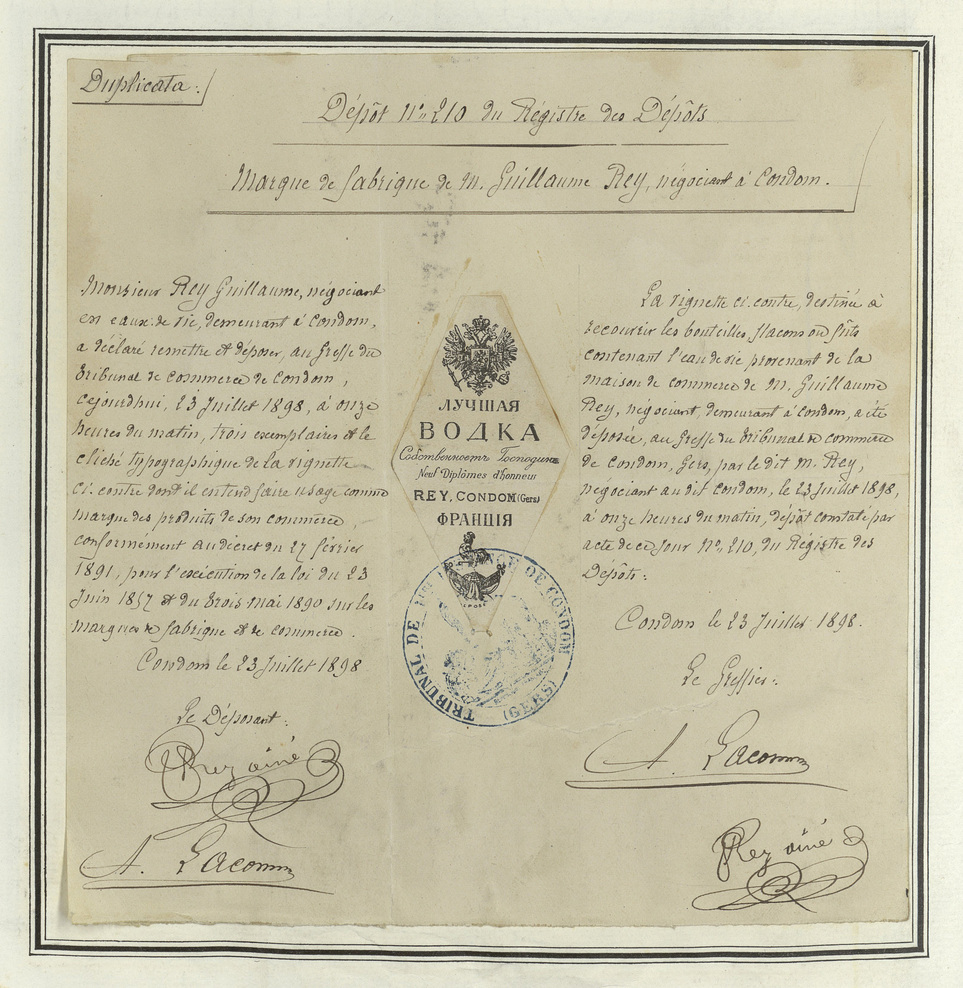 Duplicata :
Dépôt N° 210 du Régistre des Dépôts
Marque de fabrique de M. Guillaume Rey, négociant à Condom.
Monsieur Rey Guillaume, négociant
en eaux-de-vie, demeurant à Condom,
a déclaré remettre et déposer, au Greffe du
Tribunal de Commerce de Condom,
cejourdhui, 23 Juillet 1898, à onze
heures du matin, trois exemplaires et le
cliché typographique de la vignette
ci-contre dont il entend faire usage comme
marque des produits de son commerce,
conformément au décret du 27 février
1891, pour l'exécution de la loi du 23
Juin 1857 et du trois mai 1890 sur les
marques de fabrique et de commerce.
Condom le 23 Juillet 1898
Le Déposant :
Rey ainé
A. Lacomme
ЛУЧШАЯ
ВОДКА
Собственность Господина
Neuf Diplômes d'honneur
REY, CONDOM (Gers)
ФРАНЦІЯ
DÉPOSÉ
TRIBUNAL DE 1ère INSTANCE DE CONDOM
(GERS)
La vignette ci-contre, destinée à
recouvrir les bouteilles, flacons ou fûts
contenant l'eau de vie provenant de la
maison de commerce de M. Guillaume
Rey, négociant, demeurant à Condom, a été
déposée, au Greffe du Tribunal de commerce
de Condom, Gers, par le dit M. Rey,
négociant au dit Condom, le 23 Juillet 1898,
à onze heures du matin, dépôt constaté par
acte de ce jour N° 210, du Régistre des
Dépôts :
Condom le 23 Juillet 1898.
Le Greffier :
A. Lacomme
Rey ainé